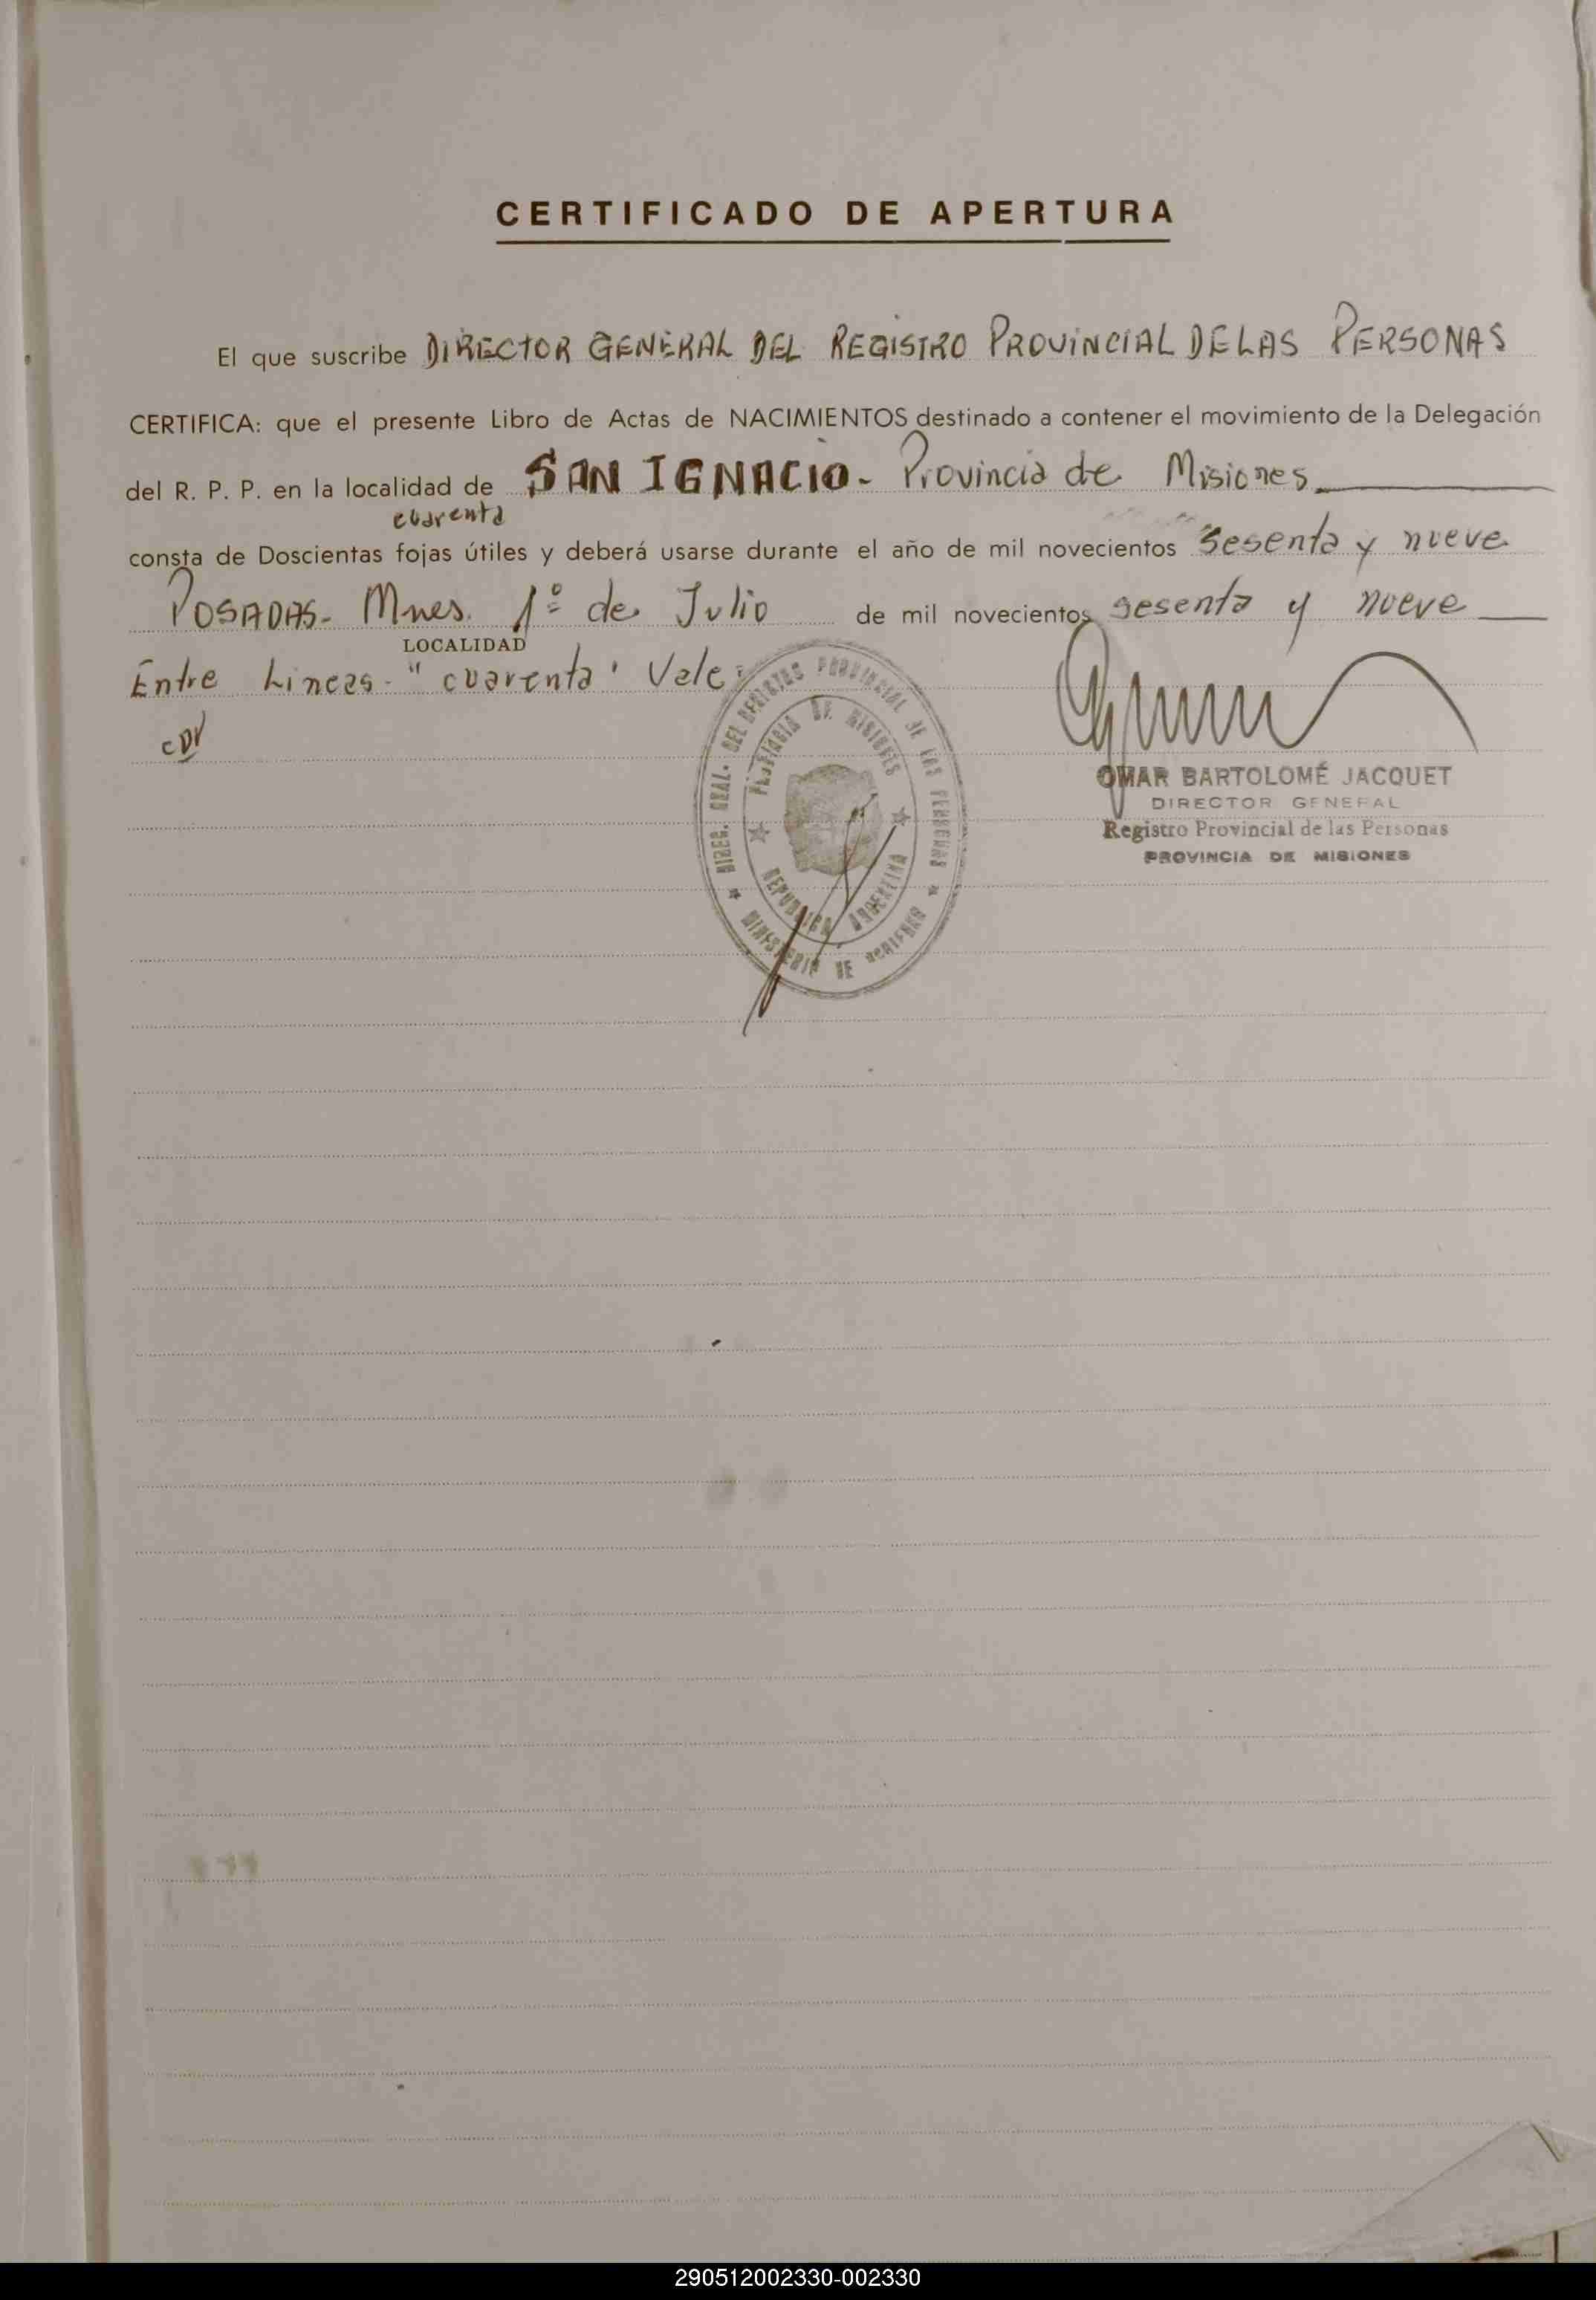 CERTIFICADO DE APERTURA
El que suscribe DIRECTOR GENERAL DEL REGISTRO PROVINCIAL DE LAS PERSONAS
CERTIFICA: que el presente Libro de Actas de NACIMIENTOS destinado a contener el movimiento de la Delegación
del R. P. P. en la localidad de SAN IGNACIO - Provincia de Misiones
cuarenta
consta de Doscientas fojas útiles y deberá usarse durante el año de mil novecientos sesenta y nueve
POSADAS - Mnes. 1º de Julio de mil novecientos sesenta y nueve
LOCALIDAD
Entre Lineas - "cuarenta" Vale:
CDV
DIREC. GRAL. DEL REGISTRO PROVINCIAL DE LAS PERSONAS
PROVINCIA DE MISIONES
REPUBLICA ARGENTINA
MINISTERIO DE GOBIERNO
OMAR BARTOLOMÉ JACQUET
DIRECTOR GENERAL
Registro Provincial de las Personas
PROVINCIA DE MISIONES
290512002330-002330